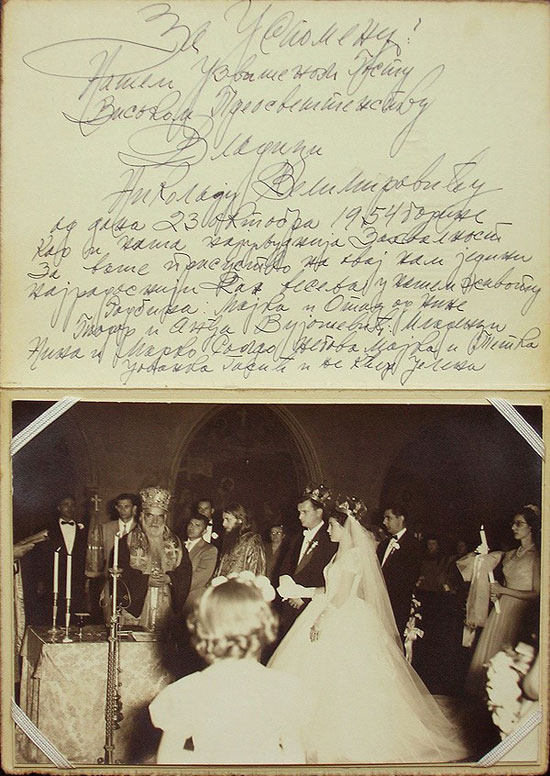 За Успомену!
Нашем Узвишеном Госту
Високом Преосвештенству
Владици
Николају Велимировићу
од дана 23 октобра 1954 године
као и наша најљуднија Захвалност
За ваше присуство на овај нам једини
најрадоснији дан весеља у нашем животу
Мајка и Отац од Нине
и Анђа Вујошевић: Младенци
Нина и Марко његова Мајка и Тетка
Јованка и Јелена